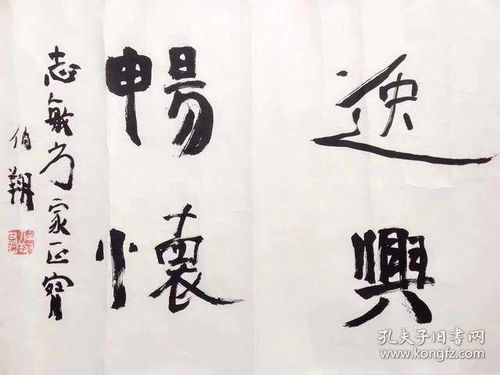 迭興
暢懷
志敏方家正
伯翔
孔夫子旧书网
www.kongfz.com